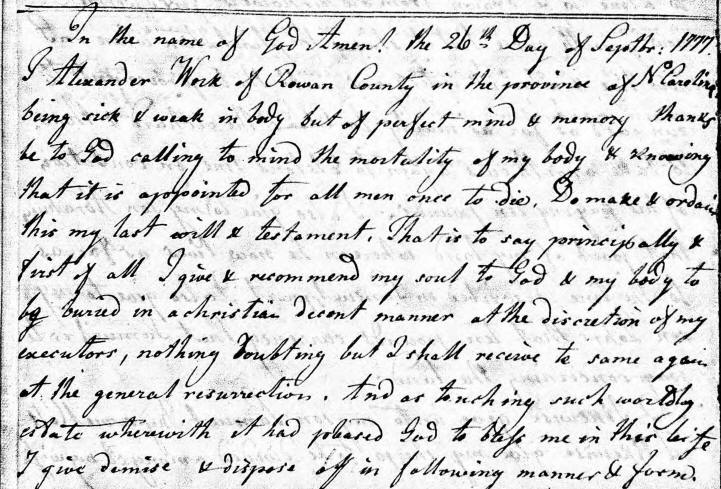 In the name of God Amen! the 26th Day of Septbr: 1777.
I Alexander Work of Rowan County in the province of No Carolina
being sick & weak in body but of perfect mind & memory thanks
be to God calling to mind the mortality of my body & knowing
that it is appointed for all men once to die, Do make & ordain
this my last will & testament, That is to say principally &
first of all I give & recommend my soul to God & my body to
be buried in a christian decent manner at the discretion of my
executors, nothing Doubting but I shall receive te same again
at the general resurrection. And as touching such worldly
estate wherewith it had pleased God to bless me in this life
I give demise & dispose off in following manner & form.